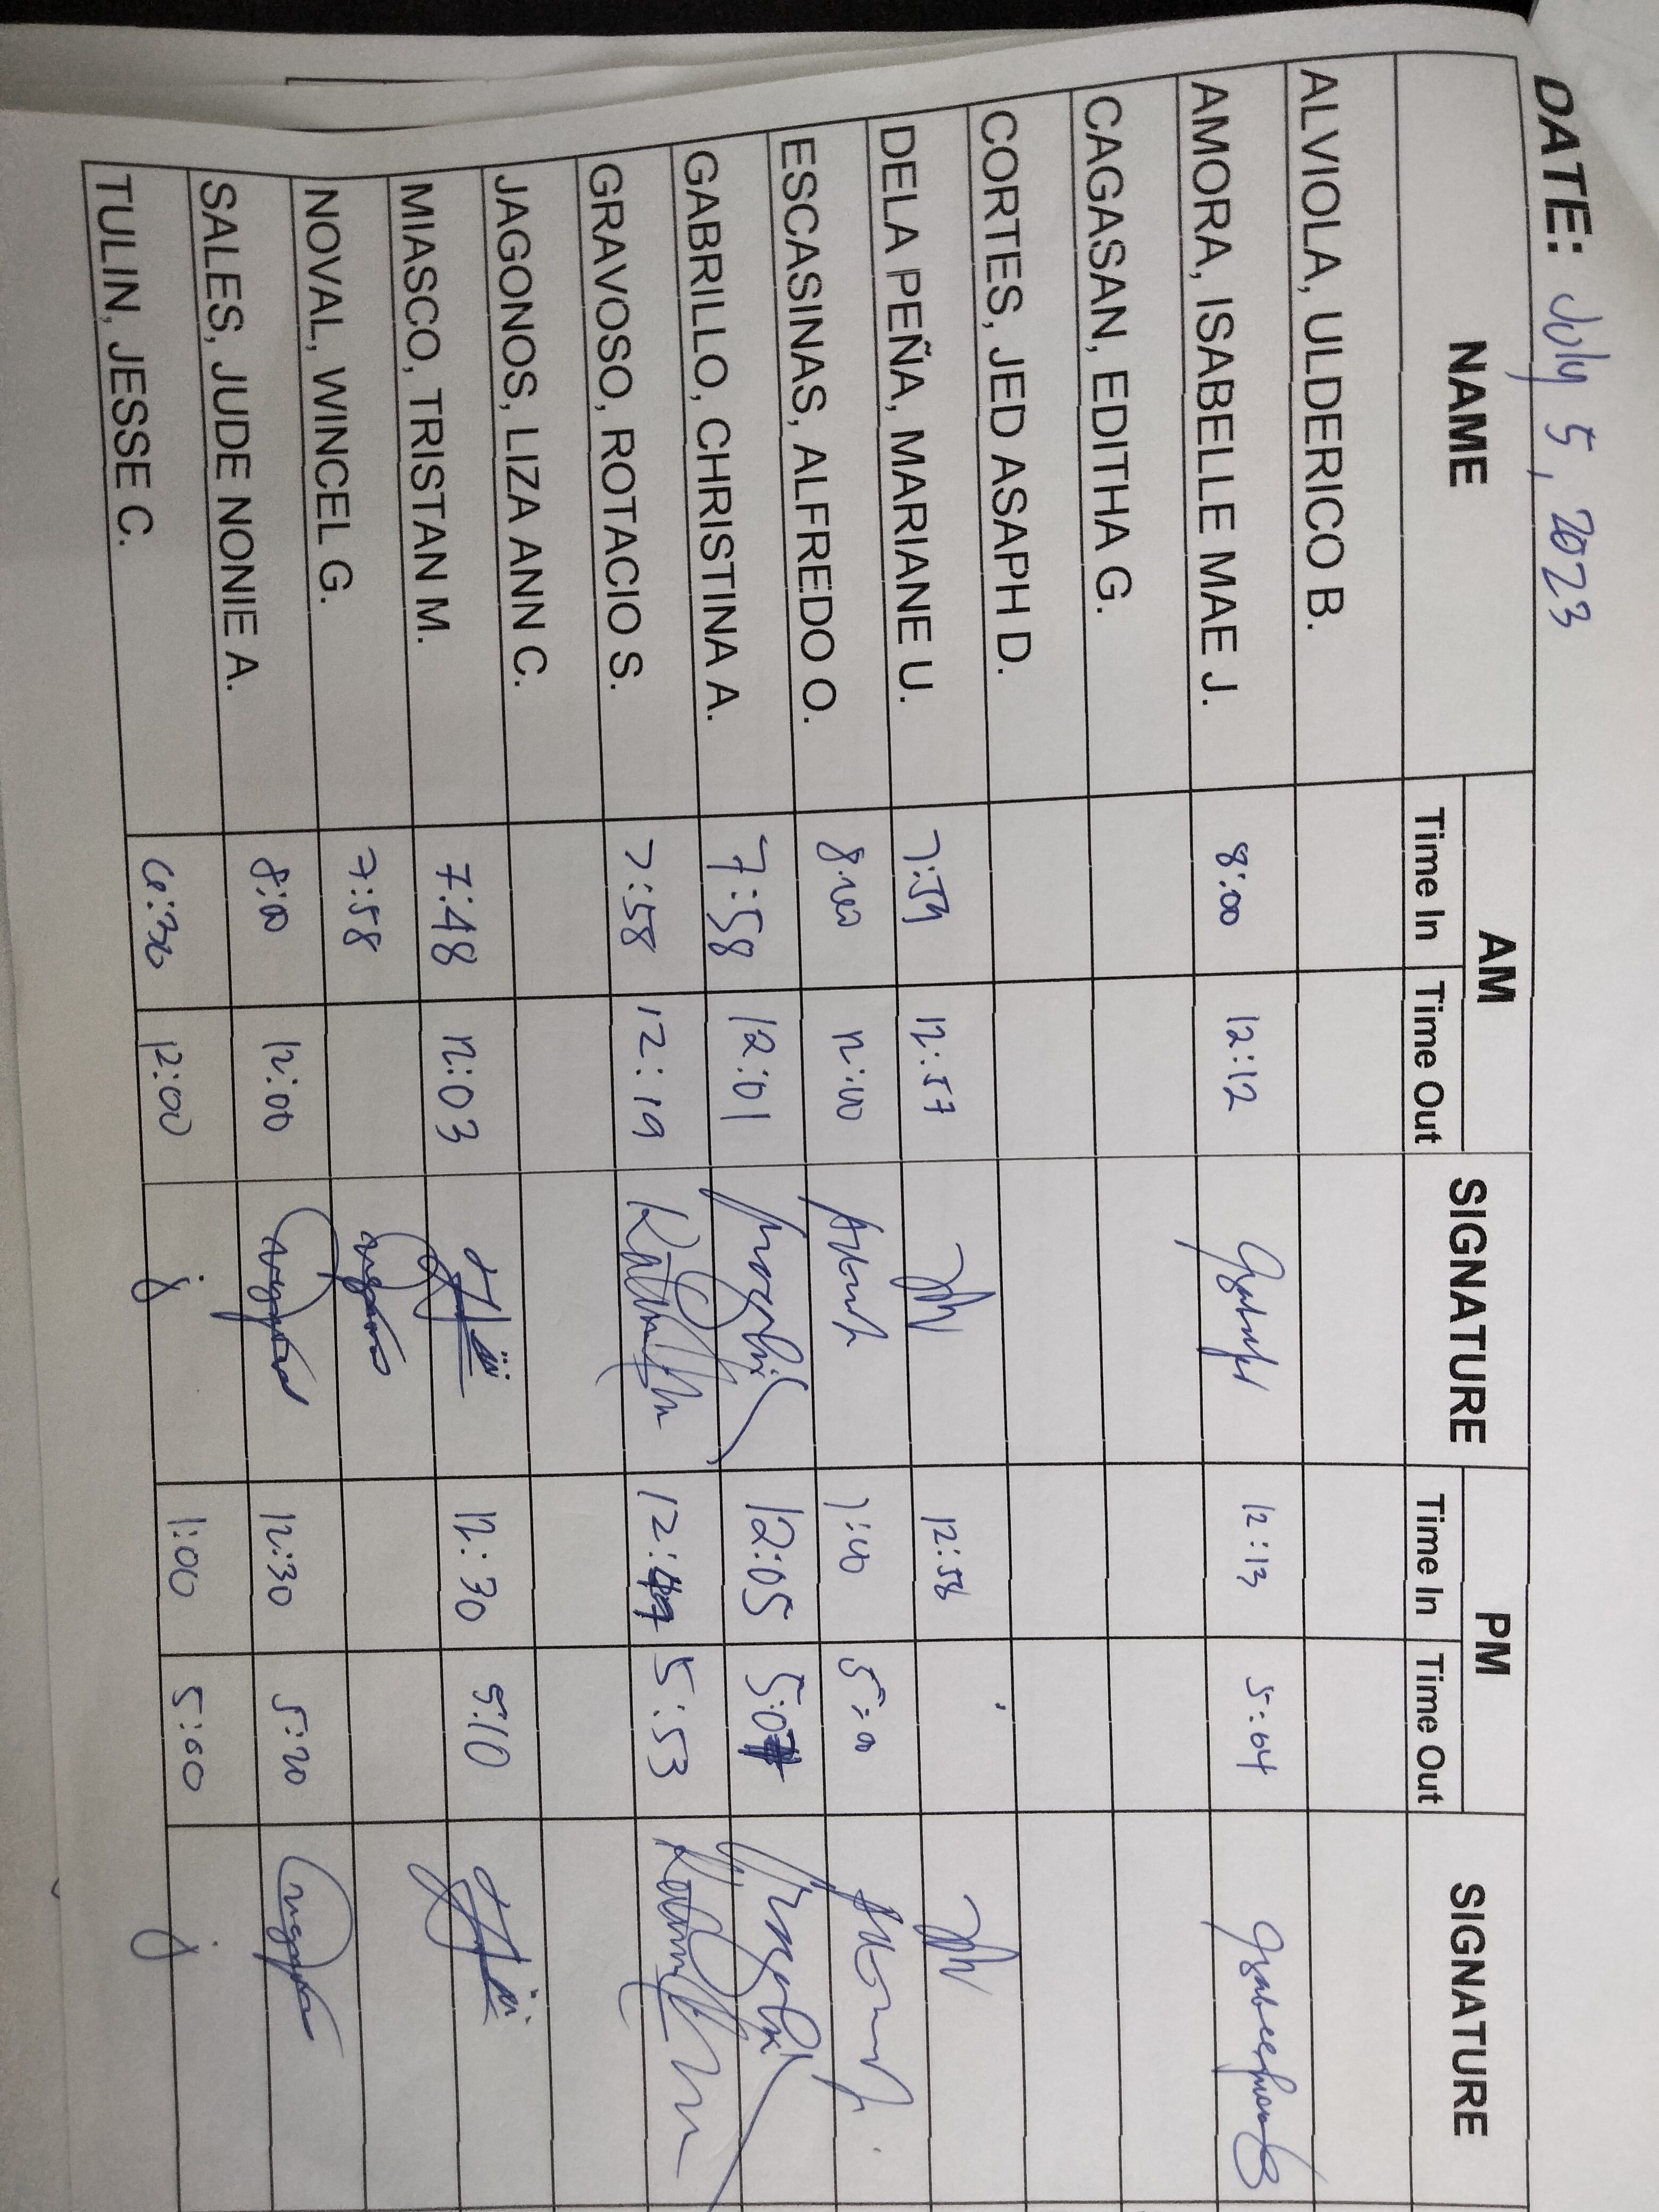 DATE: July 5, 2023
NAME AM SIGNATURE PM SIGNATURE
Time In Time Out Time In Time Out
ALVIOLA, ULDERICO B.
AMORA, ISABELLE MAE J. 8:00 12:12 12:13 5:04
CAGASAN, EDITHA G.
CORTES, JED ASAPH D.
DELA PEÑA, MARIANE U. 7:59 12:57 12:58
ESCASINAS, ALFREDO O. 8:00 12:00 1:00 5:00
GABRILLO, CHRISTINA A. 7:58 12:01 12:05 5:07
GRAVOSO, ROTACIO S. 7:58 12:19 12:47 5:53
JAGONOS, LIZA ANN C.
MIASCO, TRISTAN M. 7:48 12:03 12:30 5:10
NOVAL, WINCEL G. 7:58
SALES, JUDE NONIE A. 8:00 12:00 12:30 5:20
TULIN, JESSE C. 6:30 12:00 1:00 5:00